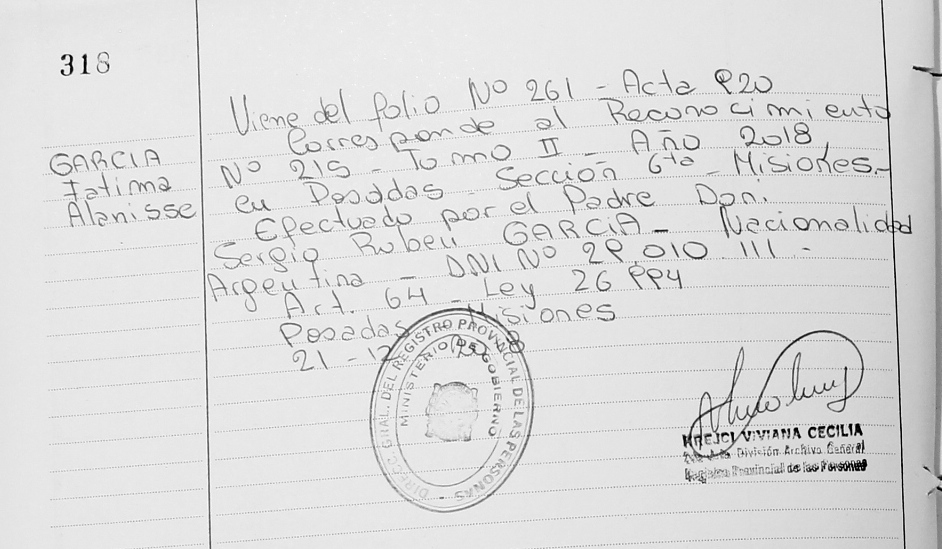 318
GARCIA
Fatima
Alanisse
Viene del folio Nº 261 - Acta 920
Corresponde al Reconocimiento
Nº 215 - Tomo II - Año 2018,
en Posadas - Sección 6ta - Misiones.-
Efectuado por el Padre Don.
Sergio Ruben GARCIA - Nacionalidad
Argentina - DNI Nº 29.010.111 -
Art. 64 - Ley 26 994
Posadas Misiones
21 - 12
DIRECC. GRAL. DEL REGISTRO PROVINCIAL DE LAS PERSONAS
MINISTERIO DE GOBIERNO
KREJCI VIVIANA CECILIA
División Archivo General
Registro Provincial de las Personas